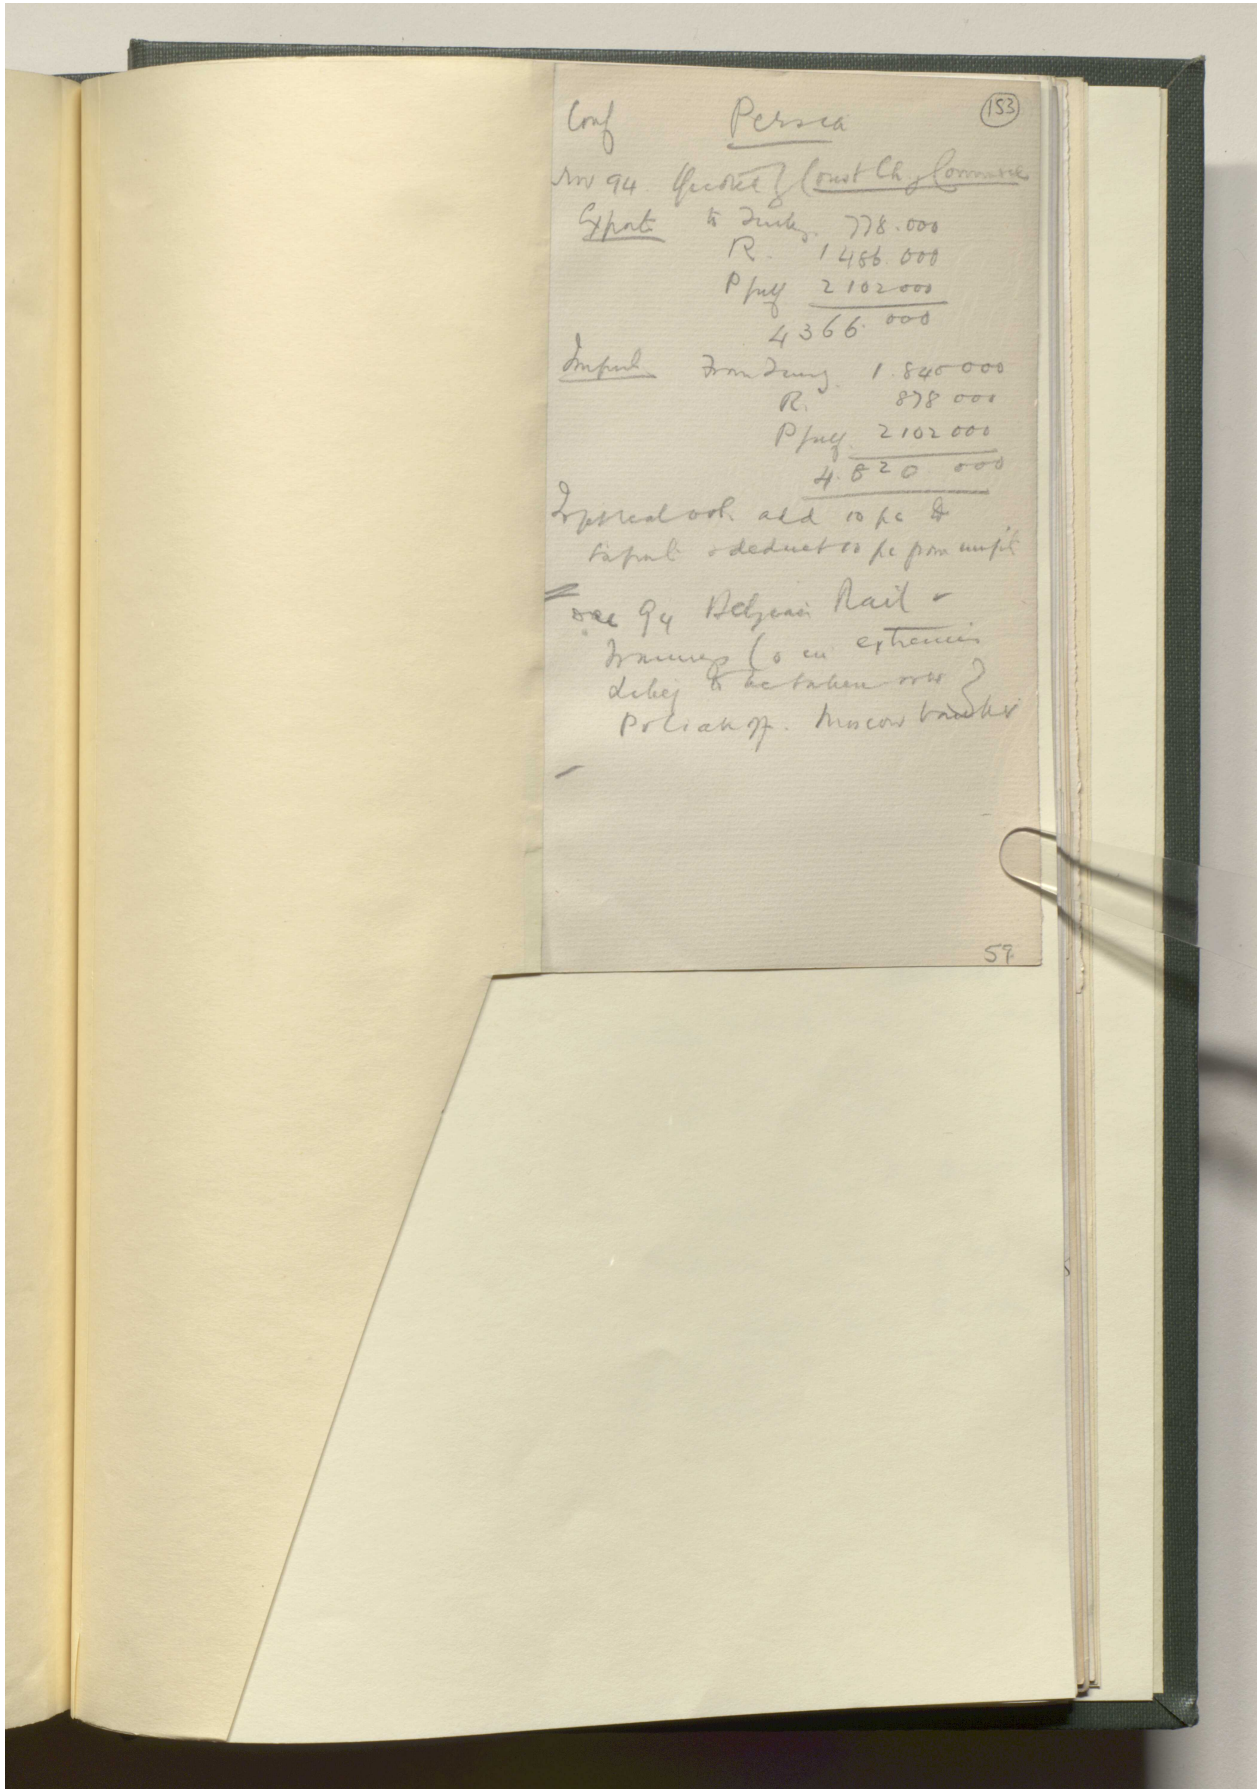 153
Conf Persia
Nov 94. Const Ch of Commerce
Exports to Turkey. 778.000
R. 1 486.000
P gulf 2 102 000
4366.000
Imports From Turkey. 1.840 000
R. 878 000
P gulf 2102 000
4.820 000
add 10 pc to
deduct 10 pc from
Dec 94 Belgian Rail &
Tramways Co in extremis
Likely to be taken over
Poliakoff. Moscow banker
59